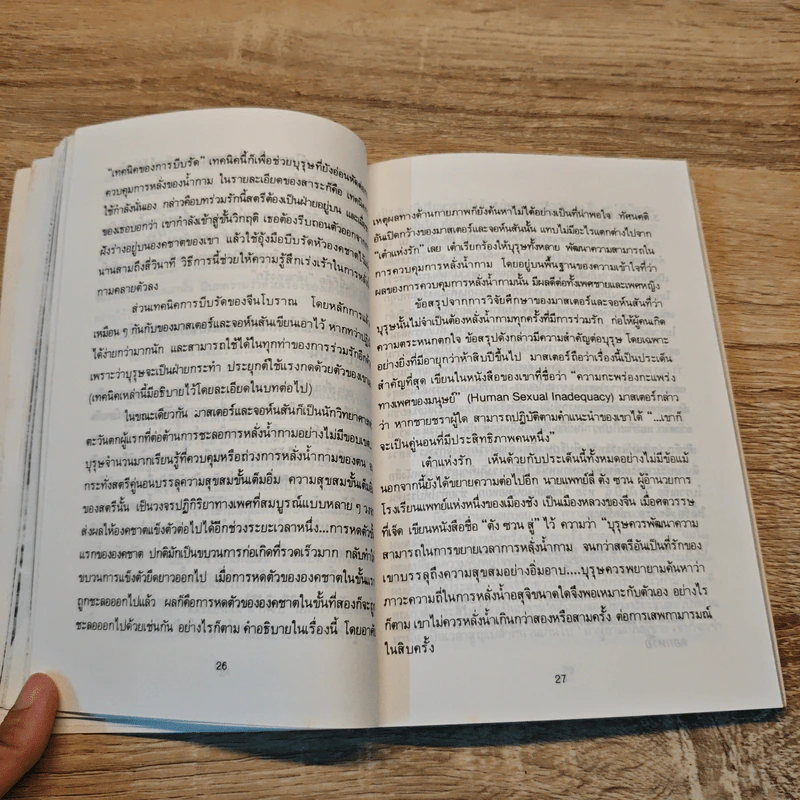 "เทคนิคของการบีบรัด" เทคนิคนี้ก็เพื่อช่วยบุรุษที่ยังอ่อนหัด
ควบคุมการหลั่งของน้ำกาม ในรายละเอียดของสาระก็คือ
ใช้กำลังนั่นเอง กล่าวคือบทร่วมรักนี้สตรีต้องเป็นฝ่ายอยู่บน
ของเธอบอกว่า เขากำลังเข้าสู่ขั้นวิกฤติ เธอต้องรีบถอนตัวออกจาก
ฝังร่างอยู่บนองคชาตของเขา แล้วใช้อุ้งมือบีบรัดหัวองคชาต
นานสามถึงสี่วินาที วิธีการนี้ช่วยให้ความรู้สึกเร่งเร้าในการหลั่ง
กามคลายตัวลง
ส่วนเทคนิคการบีบรัดของจีนโบราณ โดยหลักการ
เหมือนๆ กันกับของมาสเตอร์และจอห์นสันเขียนเอาไว้ หากทว่า
ได้ง่ายกว่ามากนัก และสามารถใช้ได้ในทุกท่าของการร่วมรักอีก
เพราะว่าบุรุษจะเป็นฝ่ายกระทำ ประยุกต์ใช้แรงกดด้วยตัวของเขา
(เทคนิคเหล่านี้มีอธิบายไว้โดยละเอียดในบทต่อไป)
ในขณะเดียวกัน มาสเตอร์และจอห์นสันก็เป็นนักวิทยาศาสตร์
ตะวันตกผู้แรกที่ต่อต้านการชะลอการหลั่งน้ำกามอย่างไม่มีขอบเขต
บุรุษจำนวนมากเรียนรู้ที่ควบคุมหรือถ่วงการหลั่งน้ำกามของตน
กระทั่งสตรีคู่นอนบรรลุความสุขสมขั้นเต็มอิ่ม ความสุขสมขั้นเต็มอิ่ม
ของสตรีนั้น เป็นวงจรปฏิกิริยาทางเพศที่สมบูรณ์แบบหลายๆ
ส่งผลให้องคชาตแข็งตัวต่อไปได้อีกช่วงระยะเวลาหนึ่ง...การหดตัว
แรกขององคชาต ปกติมักเป็นขบวนการก่อเกิดที่รวดเร็วมาก กลับทำให้
ขบวนการแข็งตัวยืดยาวออกไป เมื่อการหดตัวขององคชาตในขั้นแรก
ถูกชะลอออกไปแล้ว ผลก็คือการหดตัวขององคชาตในขั้นที่สองก็จะถูก
ชะลอออกไปด้วยเช่นกัน อย่างไรก็ตาม คำอธิบายในเรื่องนี้ โดยอาศัย
26
เหตุผลทางด้านกายภาพก็ยังค้นหาไม่ได้อย่างเป็นที่น่าพอใจ ทัศนคติ
อันเปิดกว้างของมาสเตอร์และจอห์นสันนั้น แทบไม่มีอะไรแตกต่างไปจาก
"เต๋าแห่งรัก" เลย เต๋าเรียกร้องให้บุรุษทั้งหลาย พัฒนาความสามารถใน
การควบคุมการหลั่งน้ำกาม โดยอยู่บนพื้นฐานของความเข้าใจที่ว่า
ผลของการควบคุมการหลั่งน้ำกามนั้น มีผลดีต่อทั้งเพศชายและเพศหญิง
ข้อสรุปจากการวิจัยศึกษาของมาสเตอร์และจอห์นสันที่ว่า
บุรุษนั้นไม่จำเป็นต้องหลั่งน้ำกามทุกครั้งที่มีการร่วมรัก ก่อให้ผู้คนเกิด
ความตระหนกตกใจ ข้อสรุปดังกล่าวมีความสำคัญต่อบุรุษ โดยเฉพาะ
อย่างยิ่งที่มีอายุกว่าห้าสิบปีขึ้นไป มาสเตอร์ถือว่าเรื่องนี้เป็นประเด็น
สำคัญที่สุด เขียนในหนังสือของเขาที่ชื่อว่า "ความกะพร่องกะแพร่ง
ทางเพศของมนุษย์" (Human Sexual Inadequacy) มาสเตอร์กล่าว
ว่า หากชายชราผู้ใด สามารถปฏิบัติตามคำแนะนำของเขาได้ "...เขาก็
จะเป็นคู่นอนที่มีประสิทธิภาพคนหนึ่ง"
เต๋าแห่งรัก เห็นด้วยกับประเด็นนี้ทั้งหมดอย่างไม่มีข้อแม้
นอกจากนี้ยังได้ขยายความต่อไปอีก นายแพทย์ลี่ ตัง ซวน ผู้อำนวยการ
โรงเรียนแพทย์แห่งหนึ่งของเมืองชัง เป็นเมืองหลวงของจีน เมื่อศตวรรษ
ที่เจ็ด เขียนหนังสือชื่อ "ตัง ซวน สู่" ไว้ ความว่า "บุรุษควรพัฒนาความ
สามารถในการขยายเวลาการหลั่งน้ำกาม จนกว่าสตรีอันเป็นที่รักของ
เขาบรรลุถึงความสุขสมอย่างอิ่มอาบ....บุรุษควรพยายามค้นหาว่า
ภาวะความถี่ในการหลั่งน้ำอสุจิขนาดใดจึงพอเหมาะกับตัวเอง อย่างไร
ก็ตาม เขาไม่ควรหลั่งน้ำเกินกว่าสองหรือสามครั้ง ต่อการเสพกามารมณ์
ในสิบครั้ง
27